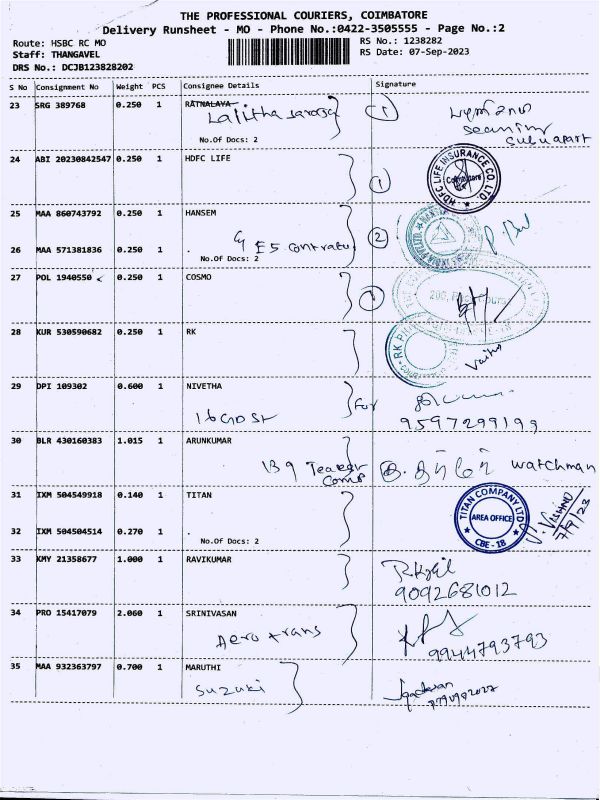 THE PROFESSIONAL COURIERS, COIMBATORE
Delivery Runsheet - MO - Phone No.:0422-3505555 - Page No.:2
Route: HSBC RC MO
Staff: THANGAVEL
DRS No.: DCJB123828202
RS No.: 1238282
RS Date: 07-Sep-2023
S No Consignment No Weight PCS Consignee Details Signature
23 SRG 389768 0.250 1 RATNALAYA
Lalitha
No.Of Docs: 2
24 ABI 20230842547 0.250 1 HDFC LIFE
1
HDFC LIFE INSURANCE CO. LTD.
Coimbatore
25 MAA 860743792 0.250 1 HANSEM
26 MAA 571381836 0.250 1
No.Of Docs: 2
2
27 POL 1940550 0.250 1 COSMO
28 KUR 530590682 0.250 1 RK
29 DPI 109302 0.600 1 NIVETHA
for
9597299199
30 BLR 430160383 1.015 1 ARUNKUMAR
139
watchman
31 IXM 504549918 0.140 1 TITAN
32 IXM 504504514 0.270 1
No.Of Docs: 2
TITAN COMPANY LTD
AREA OFFICE
CBE - 18
7/9/23
33 KMY 21358677 1.000 1 RAVIKUMAR
9092681012
34 PRO 15417079 2.060 1 SRINIVASAN
Aero trans
9944793793
35 MAA 932363797 0.700 1 MARUTHI
Suzuki